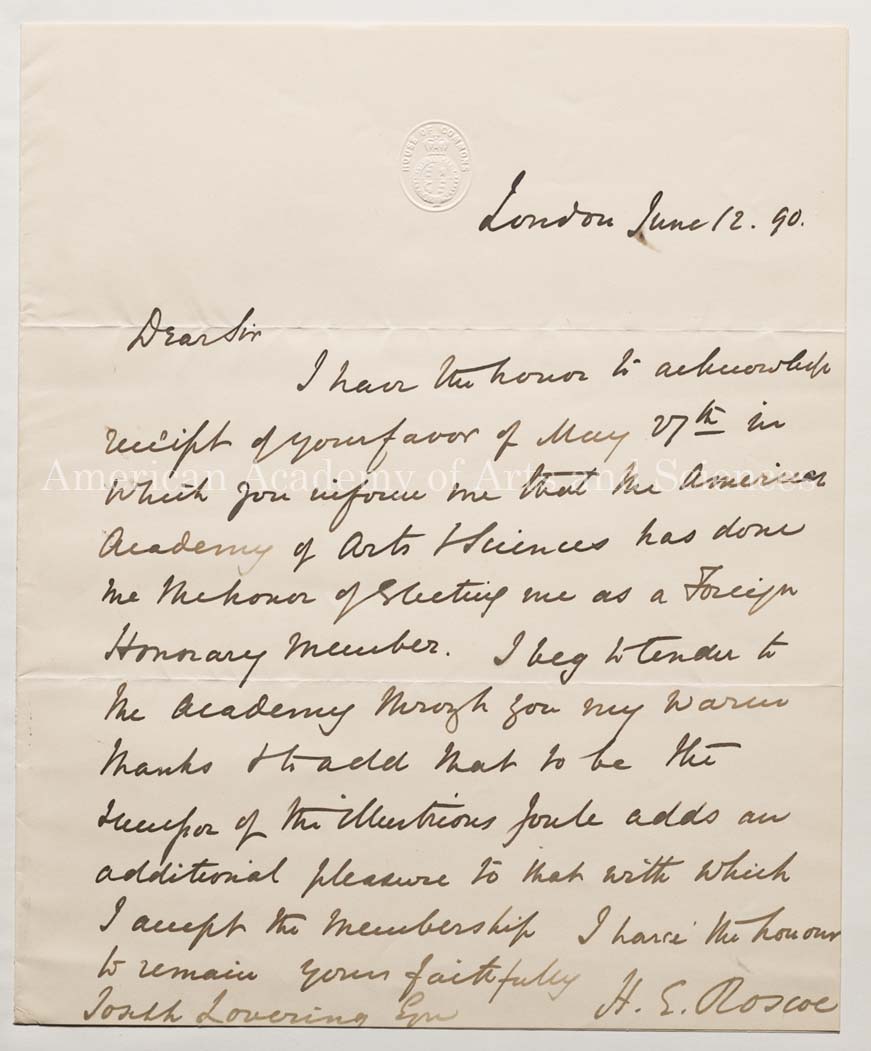 HOUSE OF COMMONS
London June 12. 90.
Dear Sir
I have the honor to acknowledge
receipt of your favor of May 27th in
American Academy of Arts and Sciences
which you inform me that the American
Academy of Arts & Sciences has done
me the honor of Electing me as a Foreign
Honorary Member. I beg to tender to
the Academy through you my warm
thanks & to add that to be the
successor of the illustrious Joule adds an
additional pleasure to that with which
I accept the Membership I have the honour
to remain yours faithfully
Joseph Lovering Esqr H. E. Roscoe